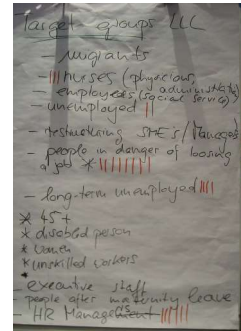 Target groups LLC
- migrants
- nurses (physicians,
- employees (social service) administrate)
- unemployed
- restructuring SME's / Manager
- people in danger of loosing
a job *
- long-term unemployed
* 45+
* disabled person
* women
* unskilled workers
*
- executive staff
- people after maternity leave
- HR Management